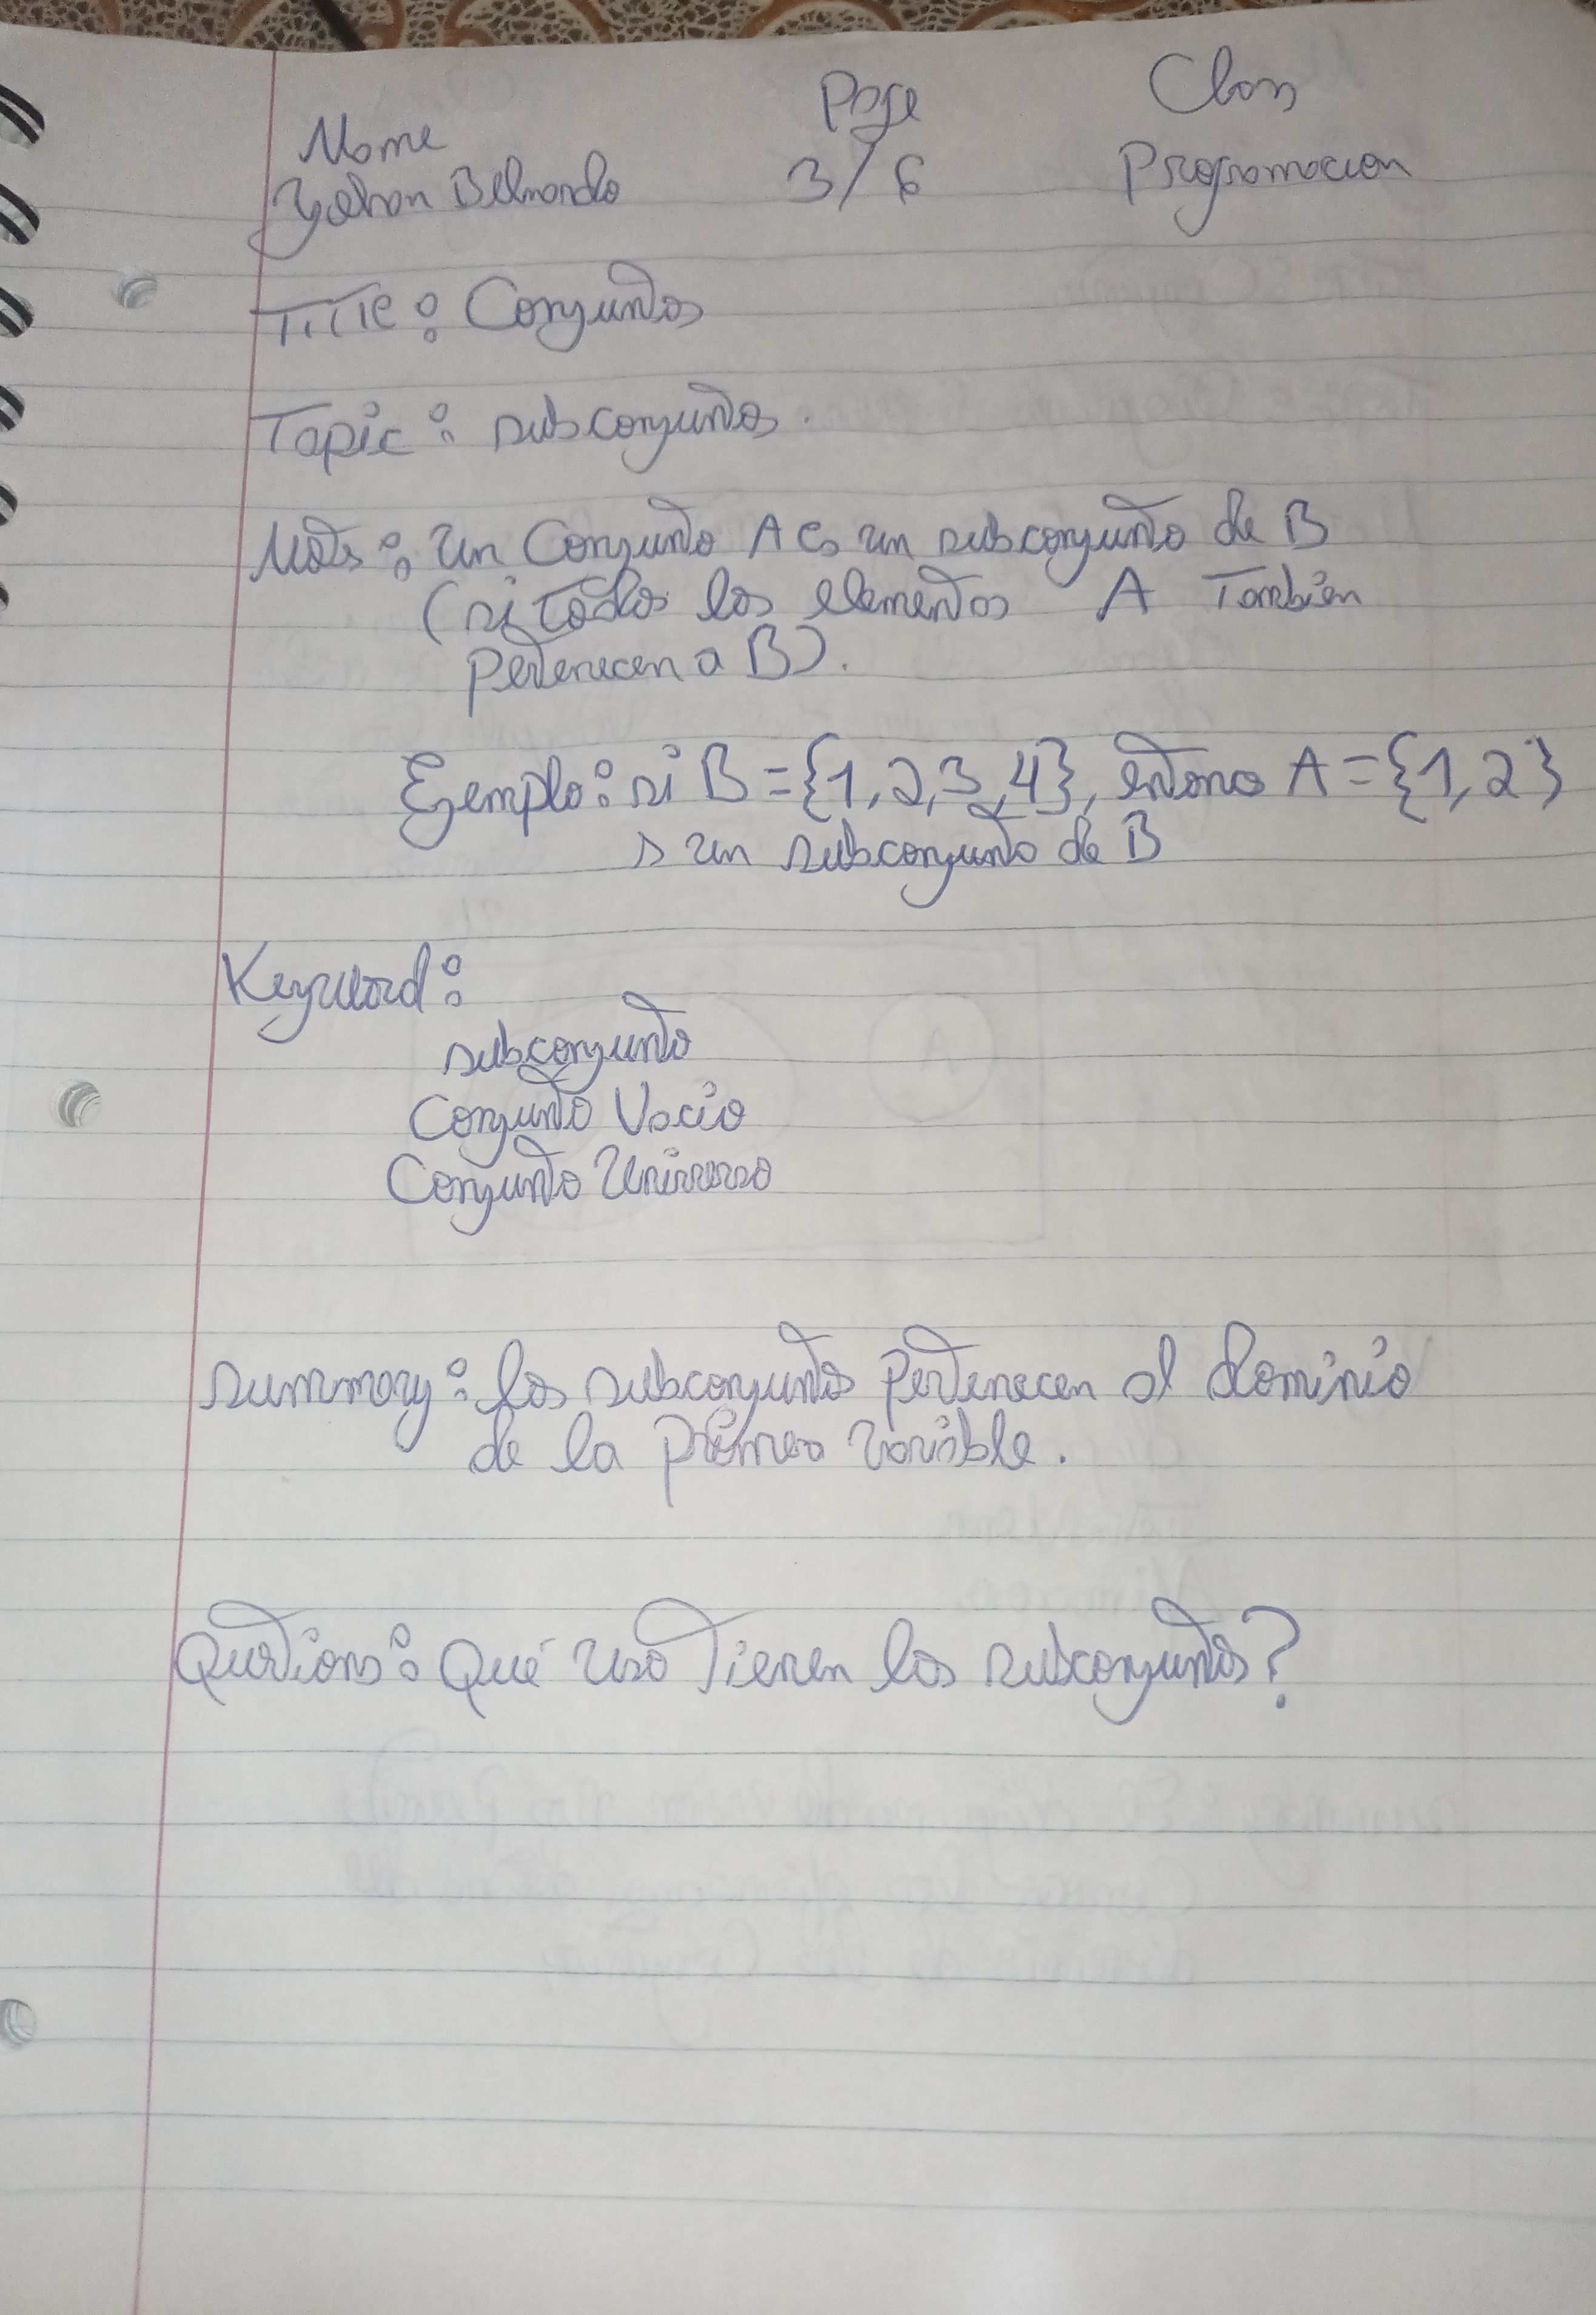 Name Page Class
Belnardo 3/6 Programacion
Title: Conjuntos
Topic: subconjuntos.
Nots: un Conjunto A es un subconjunto de B
(si todos los elementos A También
Pertenecen a B).
Ejemplo: si B = {1, 2, 3, 4}, entonces A = {1, 2}
s un subconjunto de B
Keyword:
subconjunto
Conjunto Vacío
Conjunto Universo
summary: los subconjuntos Pertenecen al dominio
de la Primera variable.
Questions: Qué uso Tienen los subconjuntos?